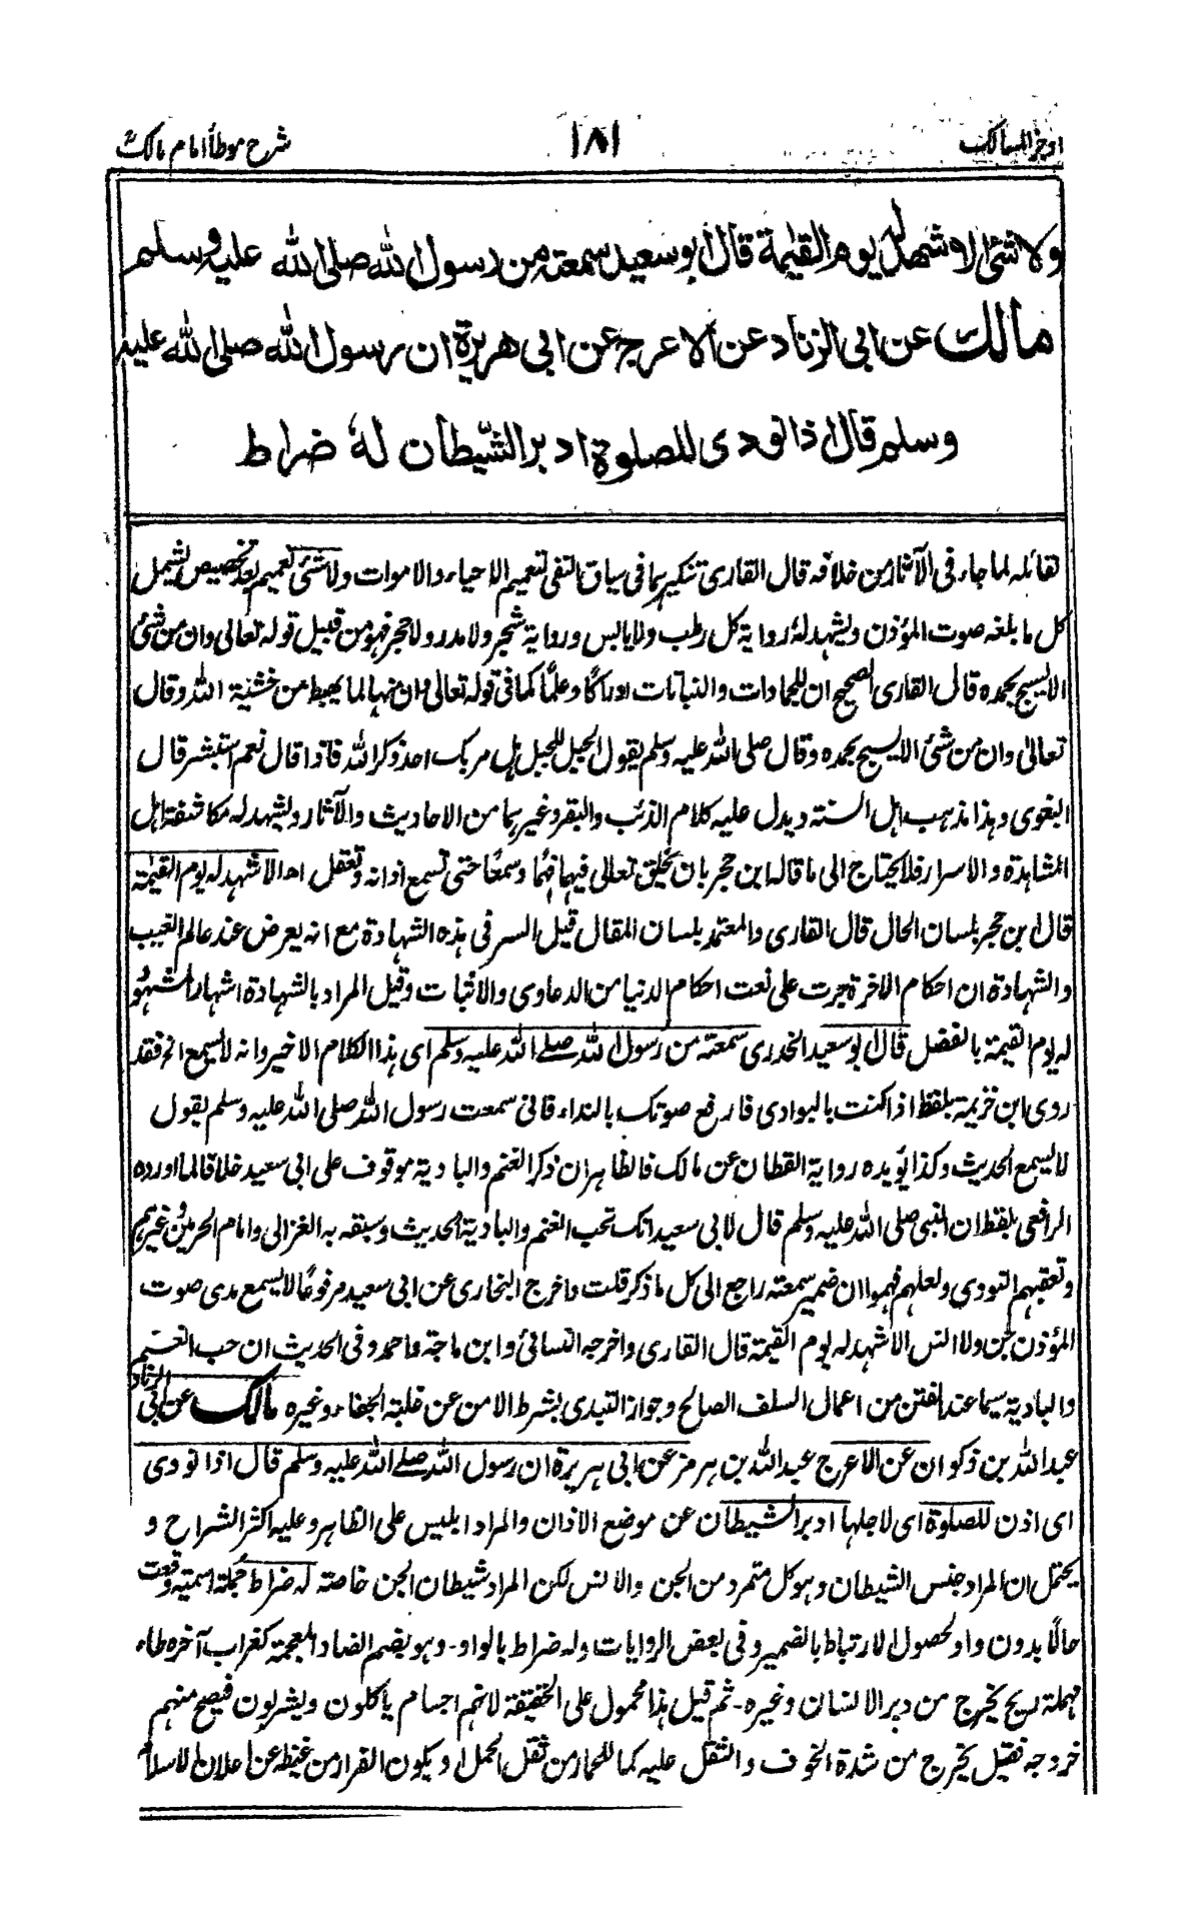 اوجز المسالک ۱۸۱ شرح موطأ امام مالک
ولا شئ الا شهد له يوم القيٰمة قال ابو سعيد سمعته من رسول الله صلى الله عليه وسلم
مالك عن ابى الزناد عن الاعرج عن ابى هريرة ان رسول الله صلى الله عليه
وسلم قال اذا نودى للصلوة ادبر الشّيطان لهٗ ضراط
لقائله لما جاء فى الآثار من خلافه قال القارى تنكيرهما فى سياق النفى لتعميم الاحياء والاموات ولا شئ تعميم بعد تخصيص يشمل
كل ما بلغه صوت المؤذن ويشهد لهٗ رواية كل رطب ولا يابس ورواية شجر ولا مدر ولا حجر فهو من قبيل قوله تعالى وان من شئ
الا يسبح بحمده قال القارى الصحيح ان للجمادات والنباتات ادراكًا وعلمًا كما فى قوله تعالى وان منها لما يهبط من خشية الله وقال
تعالى وان من شئ الا يسبح بحمده وقال صلى الله عليه وسلم يقول الجبل للجبل هل مر بك احد ذكر الله فاذا قال نعم استبشر قال
البغوى وهذا مذهب اهل السنة ويدل عليه كلام الذئب والبقر وغيرهما من الاحاديث والآثار ويشهد له مكاشفة اهل
المشاهدة والاسرار فلا يحتاج الى ما قاله ابن حجر بان يخلق تعالى فيها فهمًا وسمعًا حتى تسمع اذانه وتعقل اه الا شهد له يوم القيٰمة
قال ابن حجر بلسان الحال قال القارى والمعتمد بلسان المقال قيل السر فى هذه الشهادة مع انه يعرض عند عالم الغيب
والشهادة ان احكام الآخرة جرت على نعت احكام الدنيا من الدعاوى والاثبات وقيل المراد بالشهادة اشهار المشهود
له يوم القيمة بالفضل قال ابو سعيد الخدرى سمعته من رسول الله صلى الله عليه وسلم اى هذا الكلام الاخير وانه لا يسمع الخ فقد
روى ابن خزيمة بلفظ اذا كنت بالبوادى فارفع صوتك بالنداء فانى سمعت رسول الله صلى الله عليه وسلم يقول
لا يسمع الحديث وكذا يؤيده رواية القطان عن مالك فالظاهر ان ذكر الغنم والبادية موقوف على ابى سعيد خلافا لما اورده
الرافعى بلفظ ان النبى صلى الله عليه وسلم قال لابى سعيد انك تحب الغنم والبادية الحديث وسبقه به الغزالى وامام الحرمين وغيرهم
وتعقبهم النووى ولعلهم فهموا ان ضمير سمعته راجع الى كل ما ذكر قلت واخرج البخارى عن ابى سعيد مرفوعًا لا يسمع مدى صوت
المؤذن جن ولا انس الا شهد له يوم القيمة قال القارى واخرجه النسائى وابن ماجة واحمد وفى الحديث ان حب الغنم
والبادية سيما عند الفتن من اعمال السلف الصالح وجواز التبدى بشرط الامن عن غلبة الجفاء وغيره مالك عن ابى الزناد
عبد الله بن ذكوان عن الاعرج عبد الله بن هرمز عن ابى هريرة ان رسول الله صلى الله عليه وسلم قال اذا نودى
اى اذن للصلوة اى لاجلها ادبر الشيطان عن موضع الاذان والمراد ابليس على الظاهر وعليه اكثر الشراح و
يحتمل ان المراد جنس الشيطان وهو كل متمرد من الجن والانس لكن المراد شيطان الجن خاصة له ضراط جملة اسمية وقعت
حالًا بدون واو لحصول الارتباط بالضمير وفى بعض الروايات وله ضراط بالواو۔ وهو بضم الضاد المعجمة كغراب آخره طاء
مهملة ريح يخرج من دبر الانسان وغيره۔ ثم قيل هذا محمول على الحقيقة لانهم اجسام ياكلون ويشربون فيصح منهم
خروجه فقيل يخرج من شدة الخوف والثقل عليه كما للحمار من ثقل الحمل او يكون الفرار من غيظه عن اعلان الاسلام